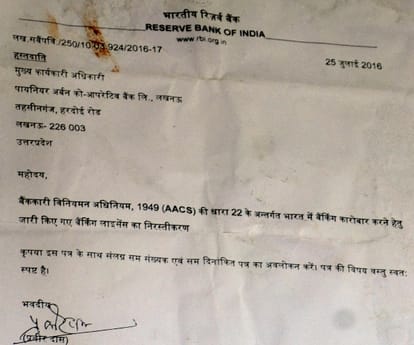 भारतीय रिज़र्व बैंक
RESERVE BANK OF INDIA
www.rbi.org.in
लख.सबैंपवि./250/10.03.924/2016-17
25 जुलाई 2016
हस्तपावती
मुख्य कार्यकारी अधिकारी
पायनियर अर्बन को-आपरेटिव बैंक लि., लखनऊ
तहसीनगंज, हरदोई रोड
लखनऊ- 226 003
उत्तरप्रदेश
महोदय,
बैंककारी विनियमन अधिनियम, 1949 (AACS) की धारा 22 के अन्तर्गत भारत में बैंकिंग कारोबार करने हेतु
जारी किए गए बैंकिंग लाइसेंस का निरस्तीकरण
कृपया इस पत्र के साथ संलग्न सम संख्यक एवं सम दिनांकित पत्र का अवलोकन करें। पत्र की विषय वस्तु स्वतः
स्पष्ट है।
भवदीय
(प्रवीर दास)